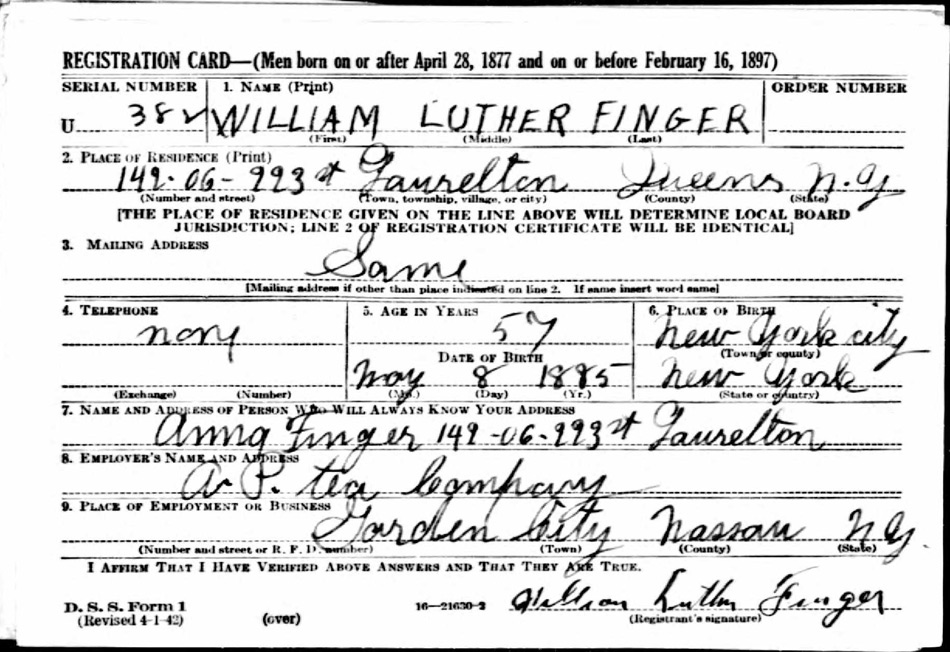 REGISTRATION CARD—(Men born on or after April 28, 1877 and on or before February 16, 1897)
SERIAL NUMBER 1. NAME (Print) ORDER NUMBER
U 382 WILLIAM LUTHER FINGER
(First) (Middle) (Last)
2. PLACE OF RESIDENCE (Print)
149-06-223 st Laurelton Queens N.Y
(Number and street) (Town, township, village, or city) (County) (State)
[THE PLACE OF RESIDENCE GIVEN ON THE LINE ABOVE WILL DETERMINE LOCAL BOARD
JURISDICTION; LINE 2 OF REGISTRATION CERTIFICATE WILL BE IDENTICAL]
3. MAILING ADDRESS
Same
[Mailing address if other than place indicated on line 2. If same insert word same]
4. TELEPHONE 5. AGE IN YEARS 6. PLACE OF BIRTH
none 57 New York city
DATE OF BIRTH (Town or county)
May 8 1885 New York
(Exchange) (Number) (Mo.) (Day) (Yr.) (State or country)
7. NAME AND ADDRESS OF PERSON WHO WILL ALWAYS KNOW YOUR ADDRESS
Anna Finger 149-06-223 st Laurelton
8. EMPLOYER'S NAME AND ADDRESS
A. P. tea Company
9. PLACE OF EMPLOYMENT OR BUSINESS
Garden City Nassau N Y.
(Number and street or R. F. D. number) (Town) (County) (State)
I AFFIRM THAT I HAVE VERIFIED ABOVE ANSWERS AND THAT THEY ARE TRUE.
D. S. S. Form 1 16—21630-2 William Luther Finger
(Revised 4-1-42) (over) (Registrant's signature)